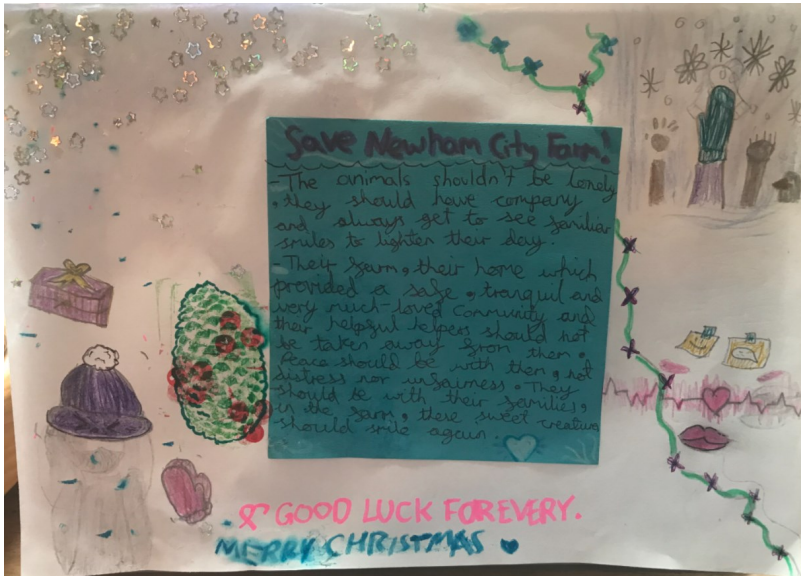 Save Newham City Farm!
- The animals shouldn't be lonely
, they should have company
and always get to see familiar
smiles to lighten their day.
- They farm, their home which
provided a safe, tranquil and
very much-loved community and
their helpful helpers should not
be taken away from them.
Peace should be with them, not
distress nor unfairness. They
should be with their families,
in the farm, these sweet creatures
should smile again.
GOOD LUCK FOREVERY.
MERRY CHRISTMAS